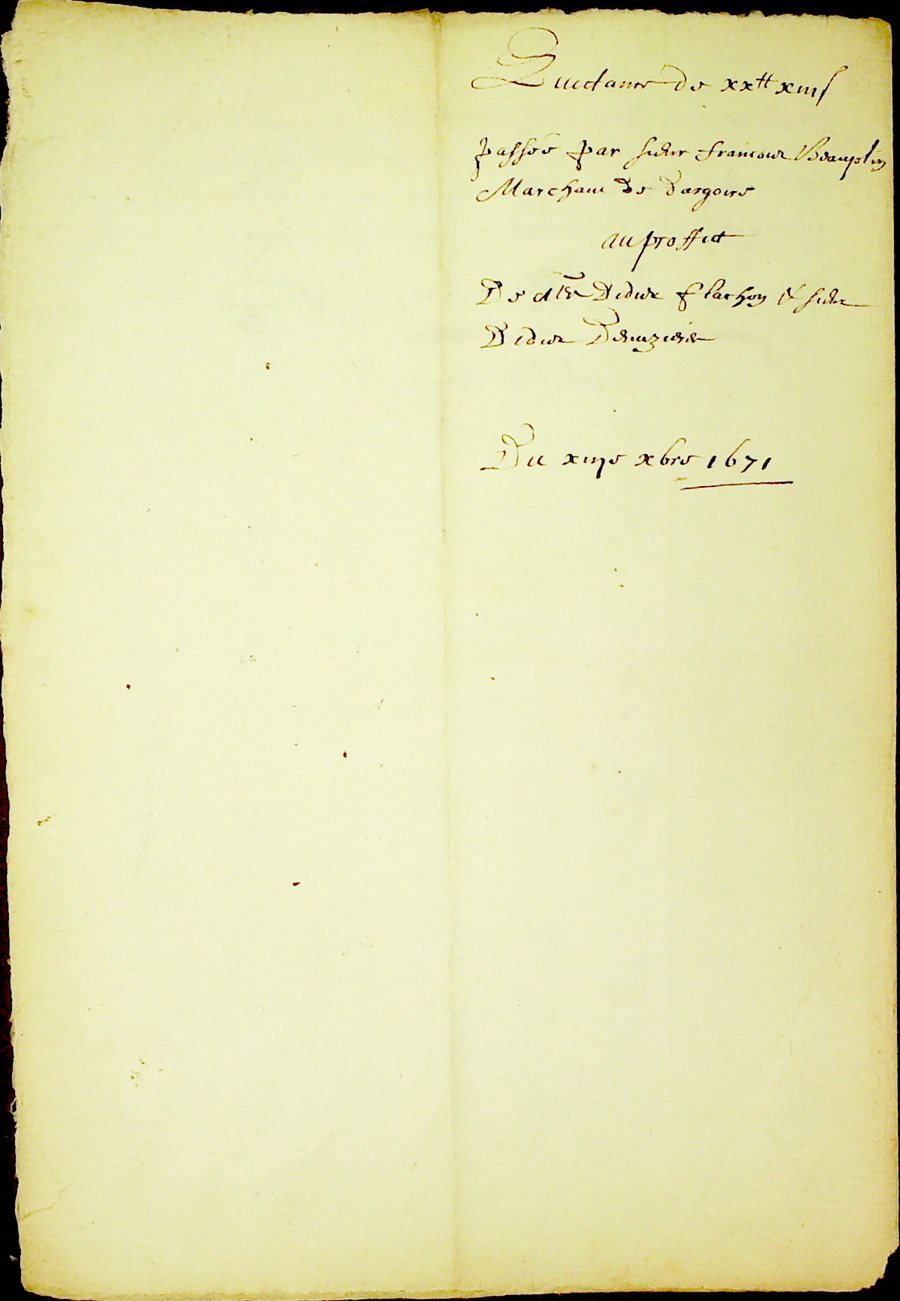 Quictance de xx tt xiiij s
passée par sieur francois Beauplin
Marchant de dargoire
au proffict
De Mre Didier flachon & sieur
Didier
Du xiije xbre 1671